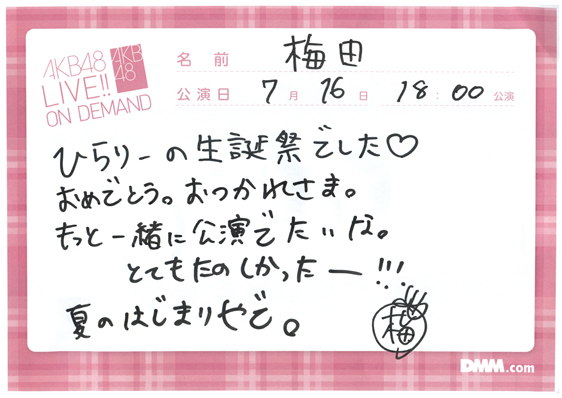 AKB48
LIVE!!
ON DEMAND
AKB
48
名前 梅田
公演日 7月 16日 18:00 公演
ひらりーの生誕祭でした♡
おめでとう。おつかれさま。
もっと一緒に公演でたいな。
とてもたのしかったー!!!
夏のはじまりやで。
梅
DMM.com